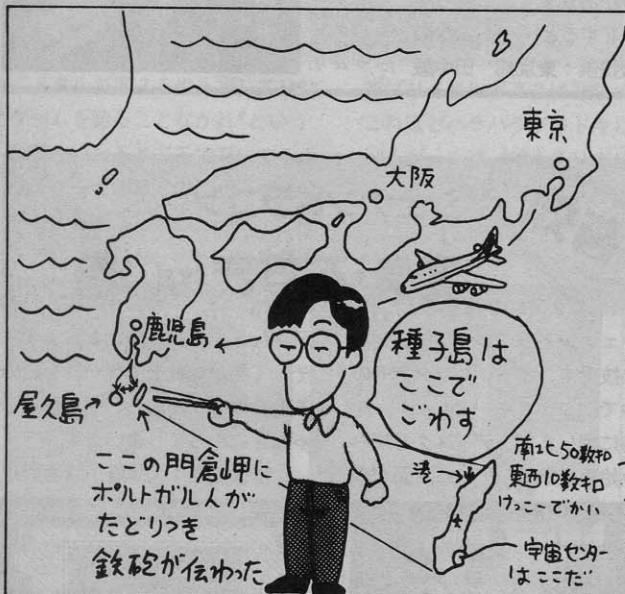 東京
大阪
鹿児島
屋久島→
種子島は
ここで
ごわす
ここの門倉岬に
ポルトガル人が
たどりつき
鉄砲が伝わった
港
南北50数キロ
東西10数キロ
けっこーでかい
宇宙センター
はここだ